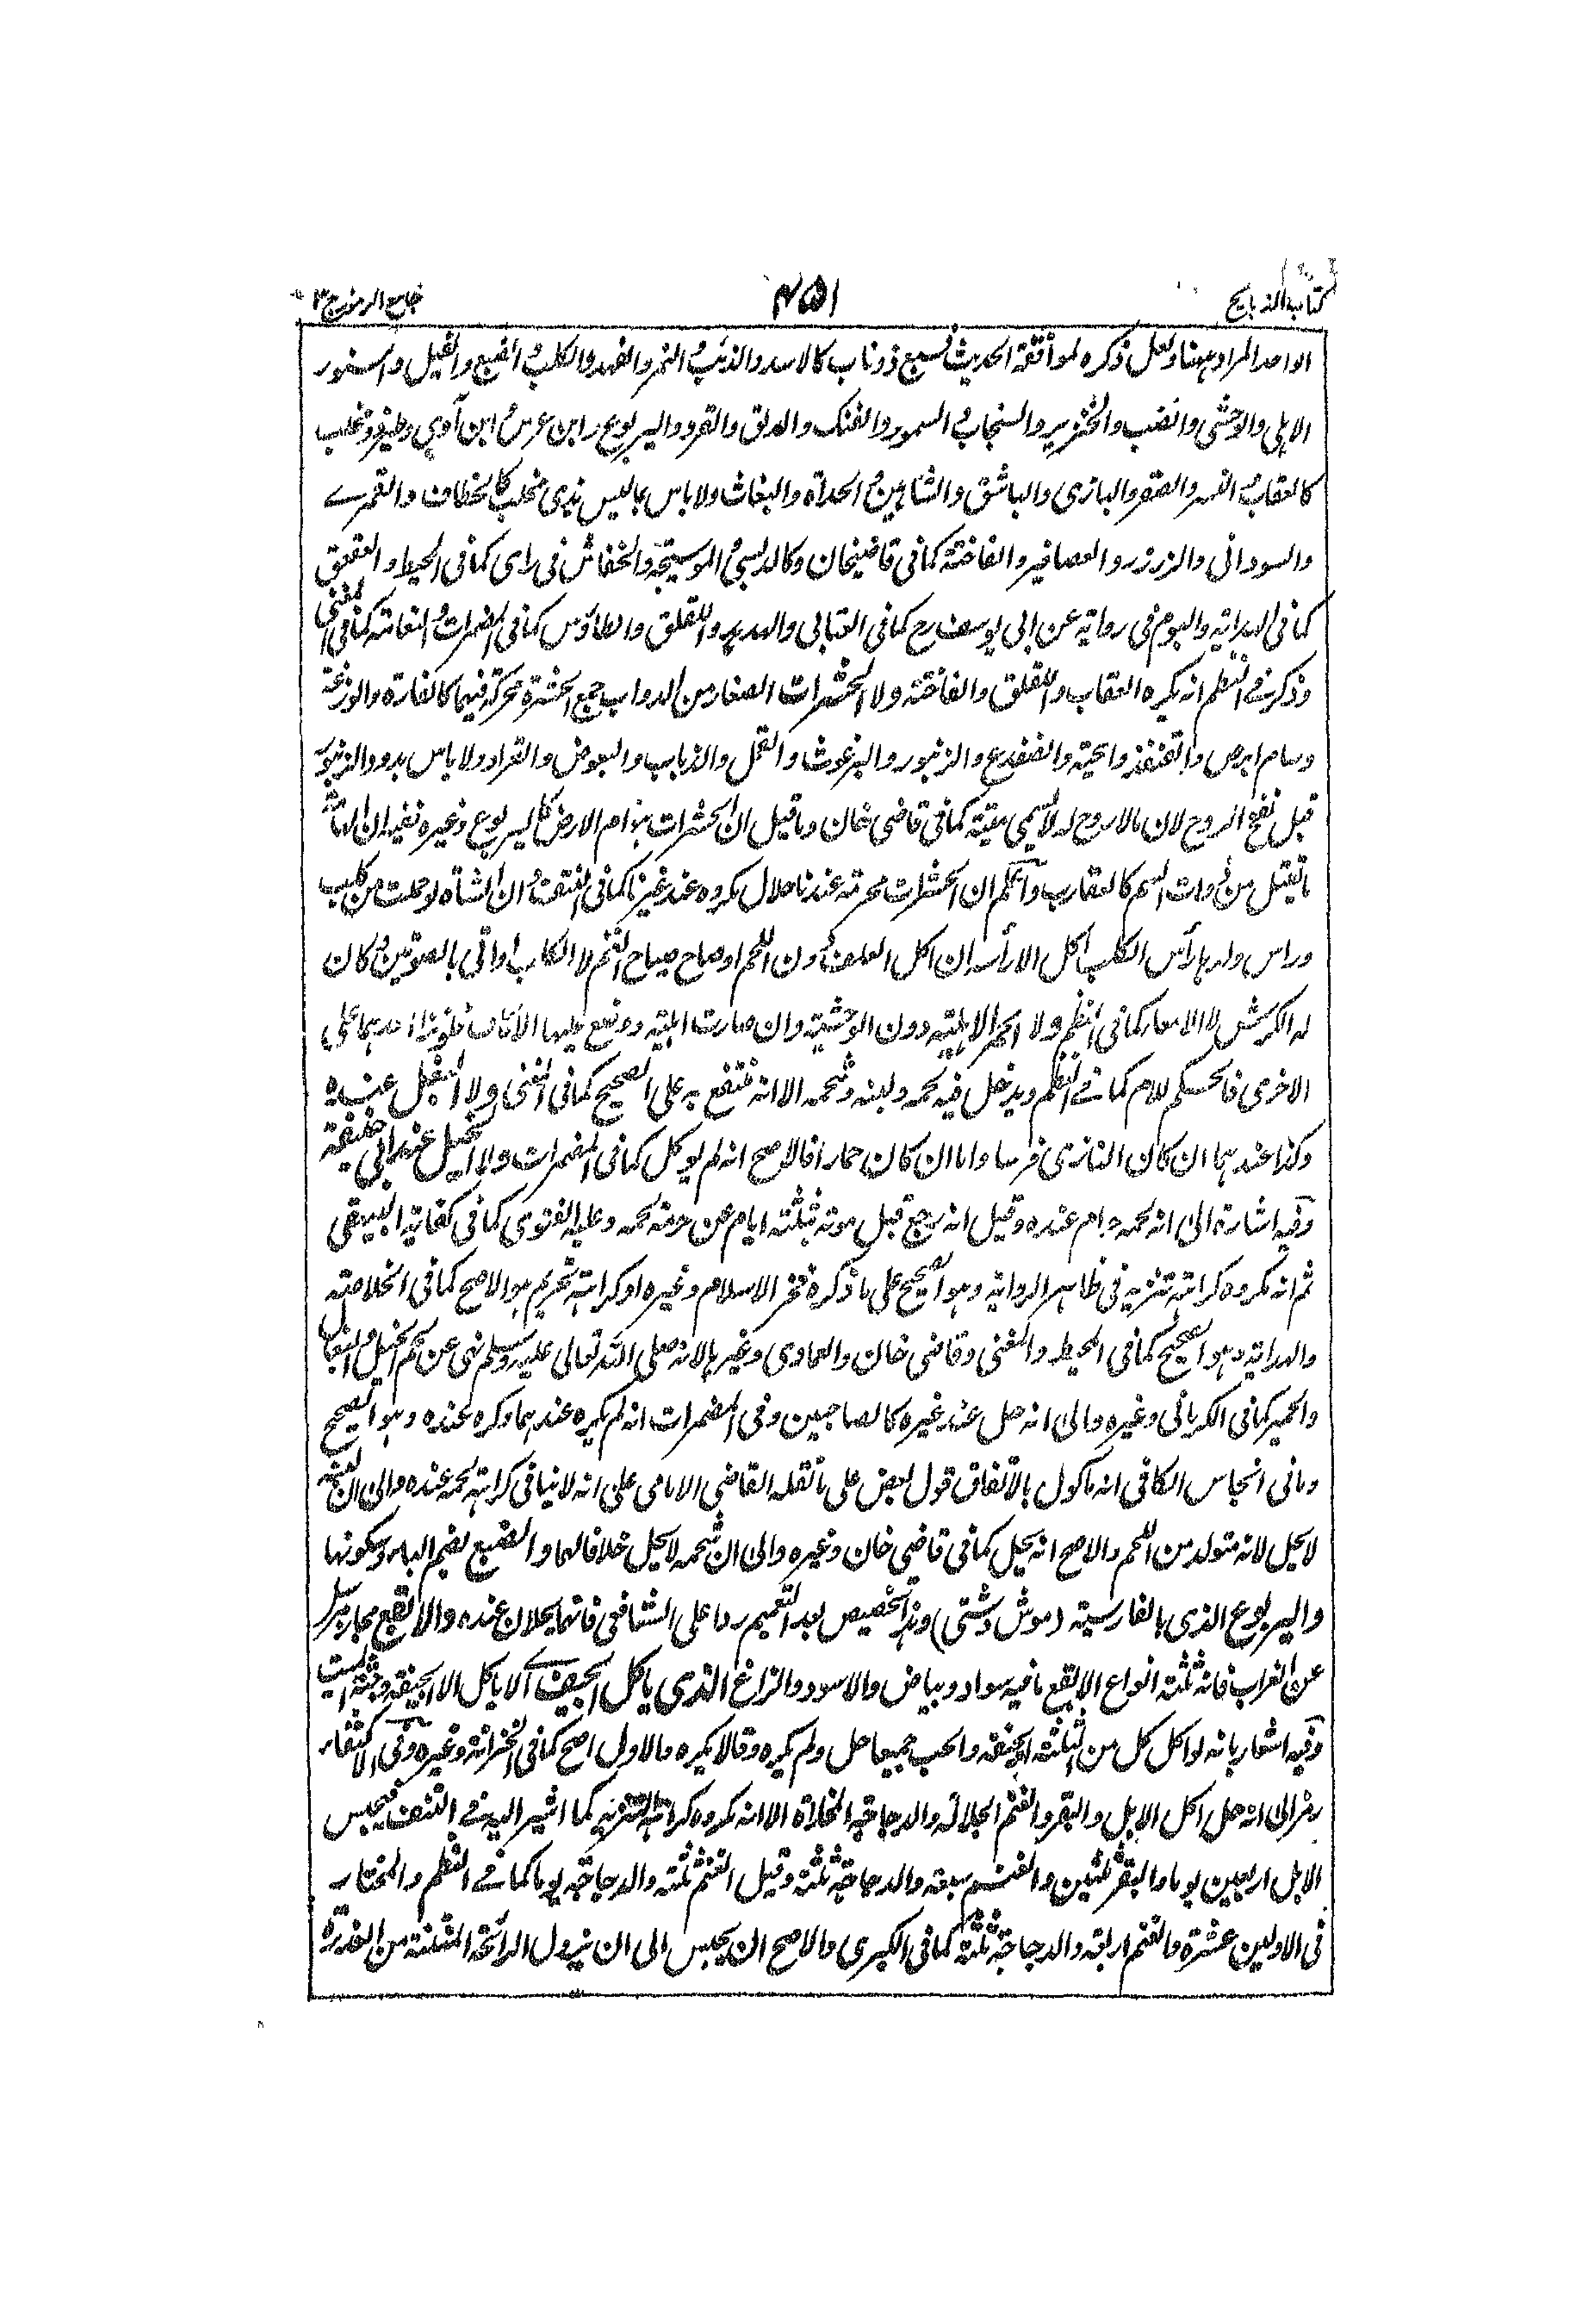 كتاب الذبايح
٤٥١
جامع الرموز ج ٣
الواحد المراد ههنا ولعل ذكره لموافقة الحديث لسبع ذو ناب كالاسد والذئب والنمر والفهد والكلب والضبع والفيل والسنور
الاهلى والوحشى والضب والخنزير والسنجاب والسمور والفنك والدلق والقرد واليربوع وابن عرس وابن آوى وطير ذو مخلب
كالعقاب والنسر والصقر والبازى والباشق والشاهين والحداة والبغاث ولا باس بما ليس بذى مخلب كالخطاف والقمرى
والسودانى والزرزر والعصافير والفاختة كما فى قاضيخان وكالدبسى والموسيجة والخفاش فى راى كما فى المحيط والعقعق
كما فى الهداية والبوم فى رواية عن ابى يوسف رح كما فى العتابى والهدهد واللقلق والطاوس كما فى المضمرات والنعامة كما فى المغنى
وذكر فى النظم انه يكره العقاب واللقلق والفاختة ولا الحشرات الصغار من الدواب جمع الحشرة محركة فيهما كالفارة والوزغة
وسام ابرص والقنفذ والحية والضفدع والزنبور والبرغوث والقمل والذباب والبعوض والقراد ولا باس بدود الزنبور
قبل نفخ الروح لان مالا روح له لا يسمى ميتة كما فى قاضى خان وما قيل ان الحشرات هوام الارض كاليربوع وغيره ففيه ان الهامة
ما يقتل من ذوات السم كالعقارب واعلم ان الحشرات محرمة عندنا حلال مكروه عند غيرنا كما فى النتف وان الشاة لو حملت من كلب
وراس ولدها رأس الكلب اكل الا رأسه ان اكل العلف دون اللحم او صاح صياح الغنم لا الكلاب او اتى بالصوتين وكان
له الكرش لا الامعاء كما فى النظم ولا الحمر الاهلية دون الوحشية وان صارت اهلية ووضع عليها الاكاف فلو نزا احدهما على
الاخرى فالحكم للام كما فى النظم ويدخل فيه لحمه ولبنه وشحمه الا انه منتفع به على الصحيح كما فى المغنى ولا البغل عنده
وكذا عندهما ان كان النازى فرسا واما ان كان حمارا فالاصح انه لم يوكل كما فى المضمرات ولا الخيل عند ابى حنيفة
وفيه اشارة الى انه لحمه حرام عنده وقيل انه رجع قبل موته بثلثة ايام عن حرمة لحمه وعليه الفتوى كما فى كفاية البيهقى
ثم انه مكروه كراهة تنزيه فى ظاهر الرواية وهو الصحيح على ما ذكره فخر الاسلام وغيره او كراهة تحريم هو الاصح كما فى الخلاصة
والهداية وهو الصحيح كما فى المحيط والمغنى وقاضى خان والعمادى وغيرها لانه صلى الله تعالى عليه وسلم نهى عن لحم الخيل والبغال
والحمير كما فى الكرمانى وغيره والى انه حل عند غيره كالصاحبين وفى المضمرات انه لم يكره عندهما وكره عنده وهو الصحيح
وما فى انجاس الكافى انه ماكول بالاتفاق قول لبعض على ما نقله القاضى الامامى على انه لا ينافى كراهة لحمه عنده والى ان لبنه
لا يحل لانه متولد من اللحم والاصح انه يحل كما فى قاضى خان وغيره والى ان شحمه لا يحل خلافا لهما والضبع بضم الباء وسكونها
واليربوع الذى بالفارسية (موش دشتى) وهذا تخصيص بعد التعميم ردا على الشافعى فانهما يحلان عنده والابقع مجاز مرسل
عن الغراب فانه ثلثة انواع الابقع ما فيه سواد وبياض والاسود والزاغ الذى ياكل الجيف اى لا ياكل الا الجيفة وجثة الميت
وفيه اشعار بانه لو اكل كل من الثلثة الجيفة والحب جميعا حل ولم يكره وقالا يكره والاول اصح كما فى الخزانة وغيره وفى الاكتفاء
رمز الى انه حل اكل الابل والبقر والغنم الجلالة والدجاجة المخلاة الا انه مكروه كراهة التنزيه كما اشير اليه فى النتف فيحبس
الابل اربعين يوما والبقر ثلثين والغنم سبعة والدجاجة ثلثة وقيل الغنم ثلثة والدجاجة يوما كما فى النظم والمختار
فى الاولين عشرة والغنم اربعة والدجاجة ثلثة كما فى الكبرى والاصح ان يحبس الى ان يزول الرائحة المنتنة من العذرة